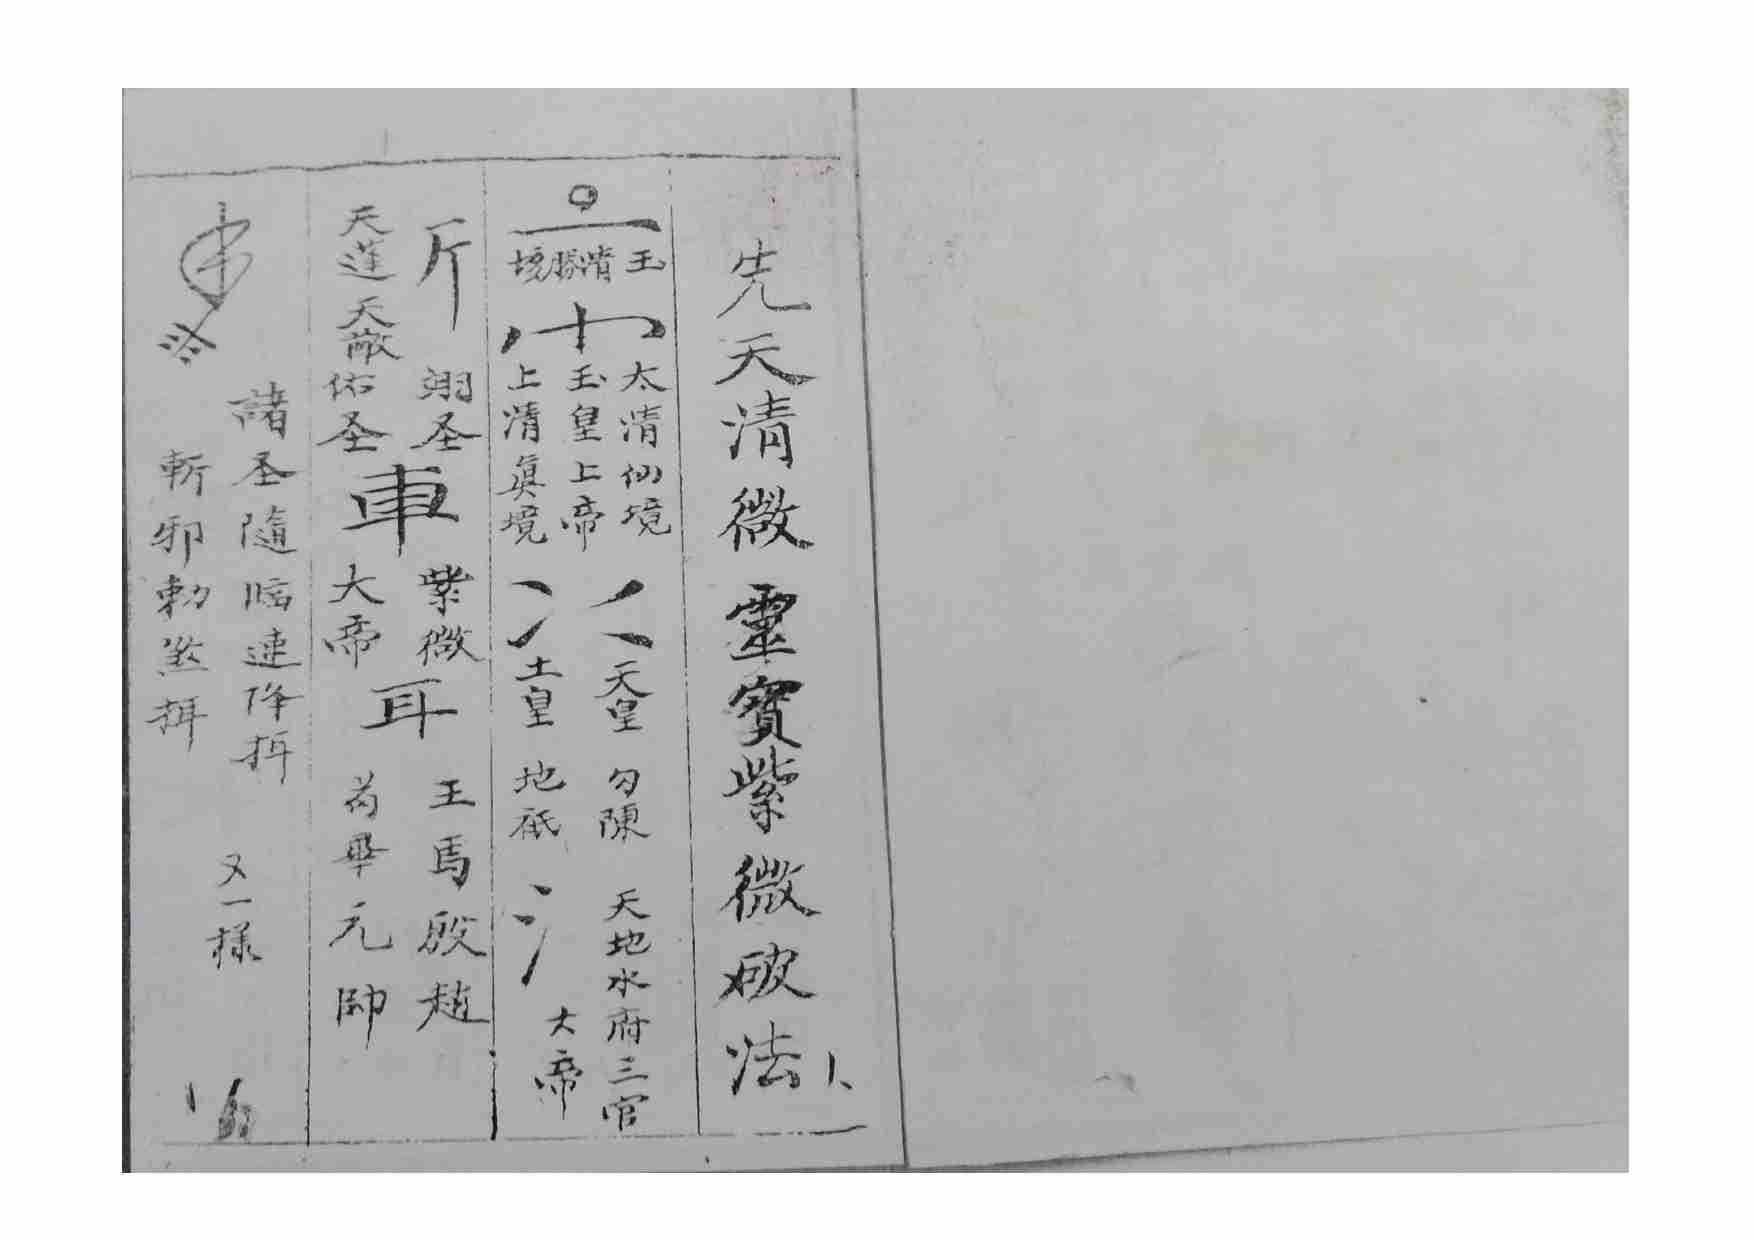 先天清微靈寳紫微破法
玉清勝境
太清仙境
玉皇上帝
上清眞境
天皇 勾陳 天地水府三官
土皇 地祇 大帝
斤 翊圣 車 紫微 耳 王馬殷趙
天蓬天敵佑圣 大帝 苟畢元帥
諸圣隨临速降挕
斬邪勅煞挕
又一樣